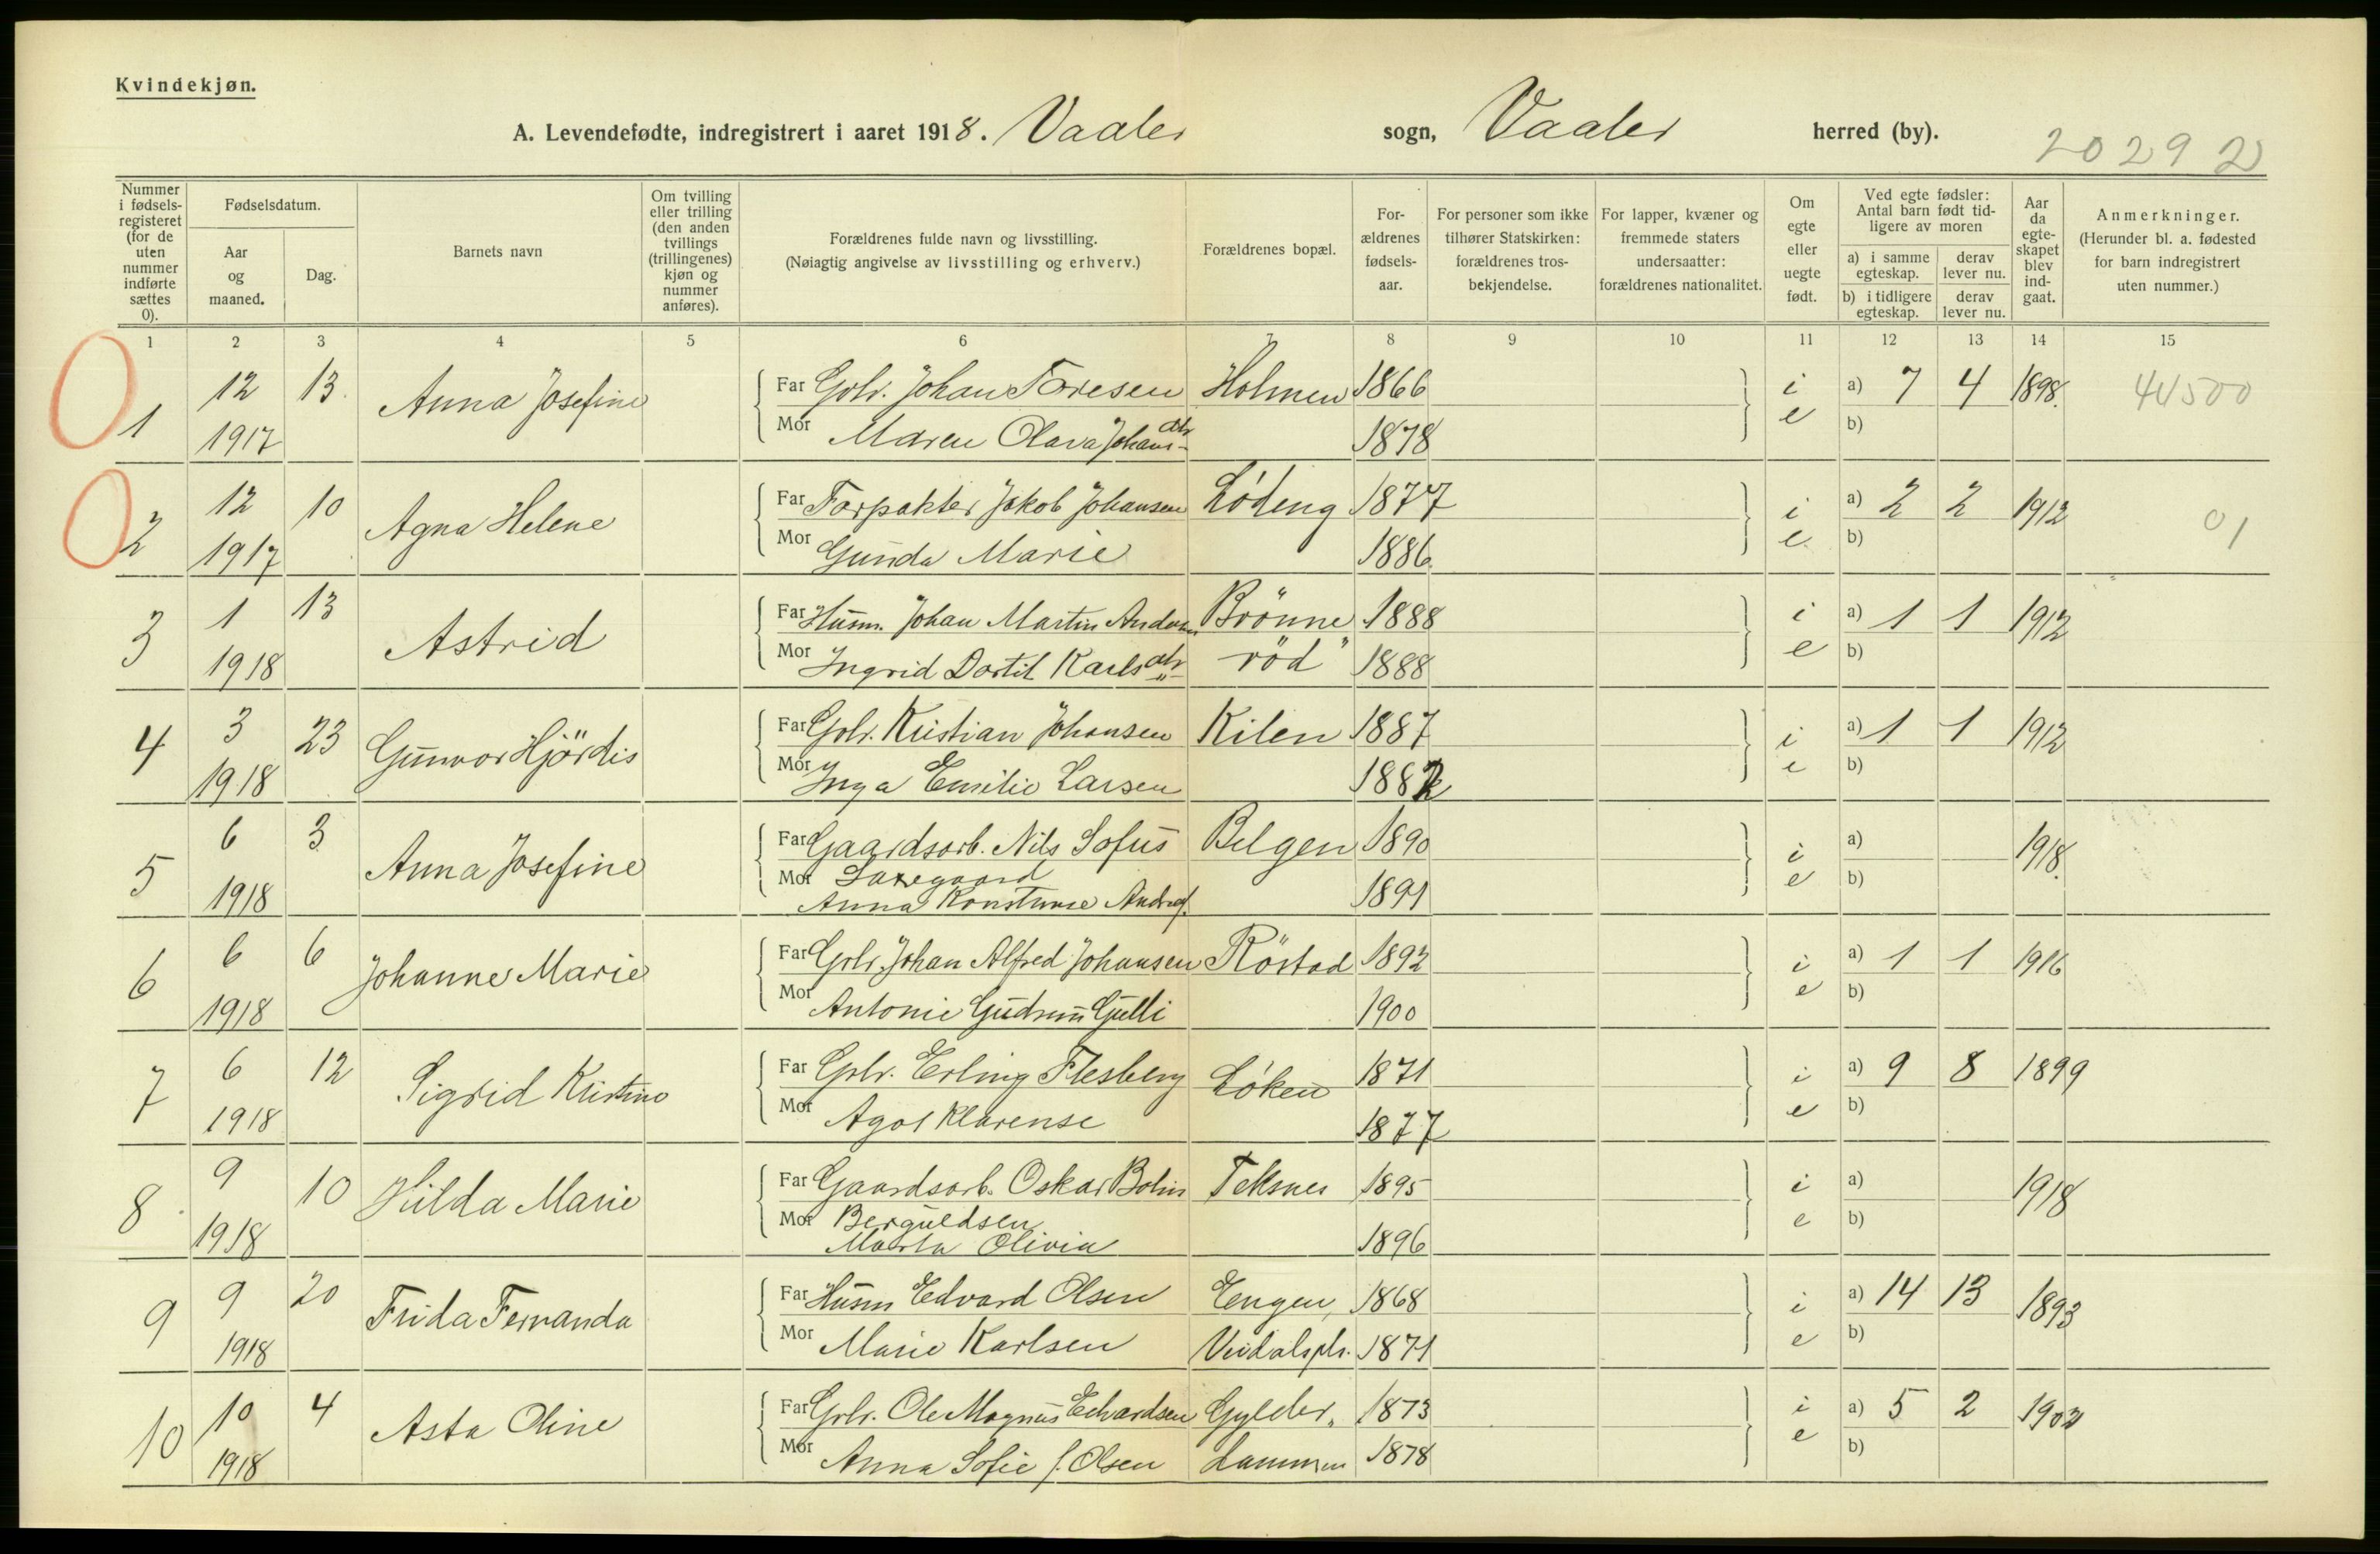 Kvindekjøn.
A. Levendefødte, indregistrert i aaret 1918. Vaaler sogn, Vaaler herred (by).
20292
Nummer i fødsels-registeret (for de uten nummer indførte sættes 0).
Fødselsdatum.
Aar og maaned.
Dag.
Barnets navn
Om tvilling eller trilling (den anden tvillings (trillingenes) kjøn og nummer anføres).
Forældrenes fulde navn og livsstilling.
(Nøiagtig angivelse av livsstilling og erhverv.)
Forældrenes bopæl.
For-ældrenes fødsels-aar.
For personer som ikke tilhører Statskirken: forældrenes tros-bekjendelse.
For lapper, kvæner og fremmede staters undersaatter: forældrenes nationalitet.
Om egte eller uegte født.
Ved egte fødsler: Antal barn født tid-ligere av moren
a) i samme egteskap.
derav lever nu.
b) i tidligere egteskap.
derav lever nu.
Aar da egte-skapet blev ind-gaat.
Anmerkninger.
(Herunder bl. a. fødested for barn indregistrert uten nummer.)
1 2 3 4 5 6 7 8 9 10 11 12 13 14 15
0 1 12 13. Anna Josefine Far Grbr. Johan Toresen Holmen 1866 i a) 7 4 1898. 44500
1917 Mor Maren Olava Johans-dtr 1878 e b)
0 2 12 10 Agna Helene Far Forpakter Jakob Johansen Lödeng 1877 i a) 2 2 1912 01
1917 Mor Gunda Marie 1886 e b)
3 1 13 Astrid Far Husm. Johan Martin Brönne 1888 i a) 1 1 1912
1918 Mor Ingrid Dortit Karlsdtr röd 1888 e b)
4 3 23 Gunvor Hjördis Far Grbr. Kristian Johansen Kilen 1887 i a) 1 1 1912
1918 Mor Inga Emilie Larsen e b)
5 6 3 Anna Josefine Far Gaardsarb. Nils Sofus Belgen 1890 i a) 1918.
Mor Saxegaard
1918 Anna Konstanse 1891 e b)
6 6 6 Johanne Marie Far Grbr. Johan Alfred Johansen Röstad 1892 i a) 1 1 1916
1918 Mor Antonie Gudrun Gulli 1900 e b)
7 6 12 Sigrid Kristine Far Grbr. Erling Flesberg Löken 1871 i a) 9 8 1899
1918 Mor Klarense 1877 e b)
8 9 10 Hilda Marie Far Gaardsarb. Oskar Bolin Teksnes 1895 i a) 1918
Mor
1918 Marta Olivia 1896 e b)
9 9 20 Frida Fernanda Far Husm Edvard Olsen Engen, 1868 i a) 14 13 1893
1918 Mor Marie Karlsen 1871 e b)
10 10 4 Asta Oline Far Grbr. Ole Magnus Edvardsen Gylder, 1873 i a) 5 2 1902
1918 Mor Anna Sofie f. Olsen Lammen 1878 e b)